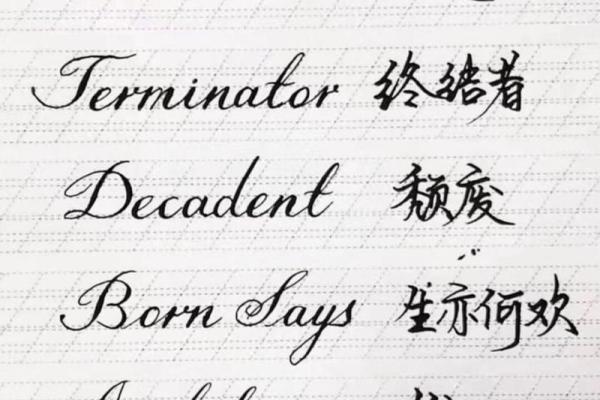 Terminator 终结者
Decadent 颓废
Born Says 生亦何欢